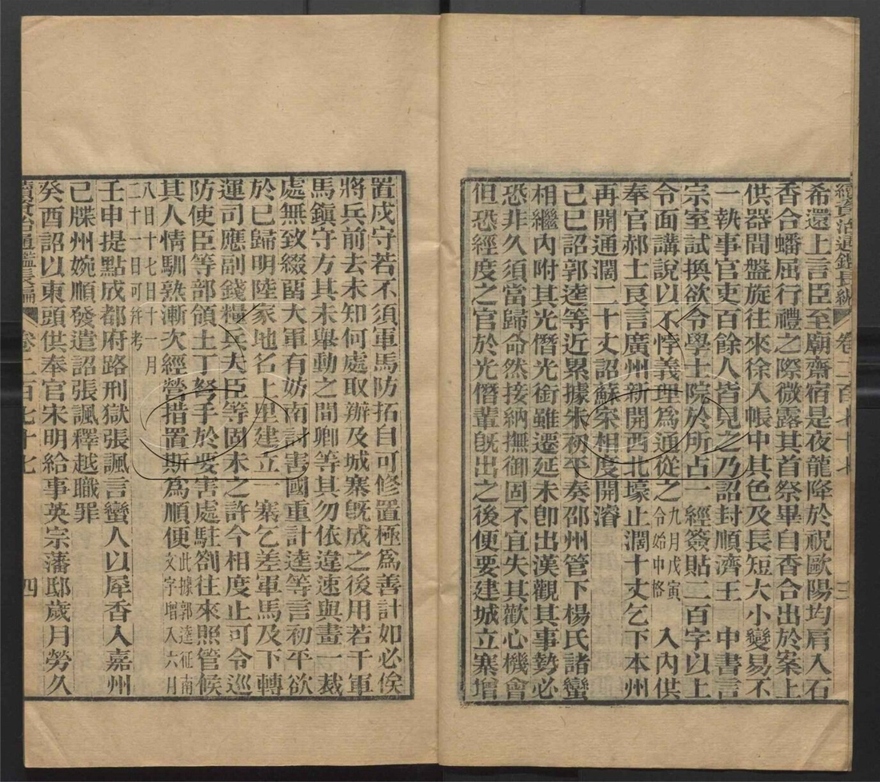 續資治通鑑長編 卷二百七十七 三
希還上言臣至廟齋宿是夜龍降於祝歐陽均肩入石
香合蟠屈行禮之際微露其首祭畢自香合出於案上
供器間盤旋往來徐入帳中其色及長短大小變易不
一執事官吏百餘人皆見之乃詔封順濟王 中書言
宗室試換欲令學士院於所占一經簽貼二百字以上
令面講說以不悖義理為通從之九月戊寅令始申格 入內供
奉官郝士良言廣州新開西北壕止濶十丈乞下本州
再開通濶二十丈詔蘇寀相度開濬
己巳詔郭逵等近累據朱初平奏邵州管下楊氏諸蠻
相繼內附其光僭光銜雖遷延未卽出漢觀其事勢必
恐非久須當歸命然接納撫御固不宜失其歡心機會
但恐經度之官於光僭輩旣出之後便要建城立寨增
置戍守若不須軍馬防拓自可修置極為善計如必俟
將兵前去未知何處取辦及城寨旣成之後用若干軍
馬鎮守方其未舉動之間卿等其勿依違速與畫一裁
處無致綴留大軍有妨南討害國重計逵等言初平欲
於已歸明陸家地名上里建立一寨乞差軍馬及下轉
運司應副錢糧兵夫臣等固未之許今相度止可令巡
防使臣等部領土丁弩手於要害處駐劄往來照管候
其人情馴熟漸次經營措置斯為順便此據郭逵征南文字增入六月
八日十七日十一月
二十一日可幷考
壬申提點成都府路刑獄張諷言蠻人以犀香入嘉州
已牒州婉順發遣詔張諷釋越職罪
癸酉詔以東頭供奉官宋明給事英宗藩邸歲月勞久
續資治通鑑長編 卷二百七十七 四